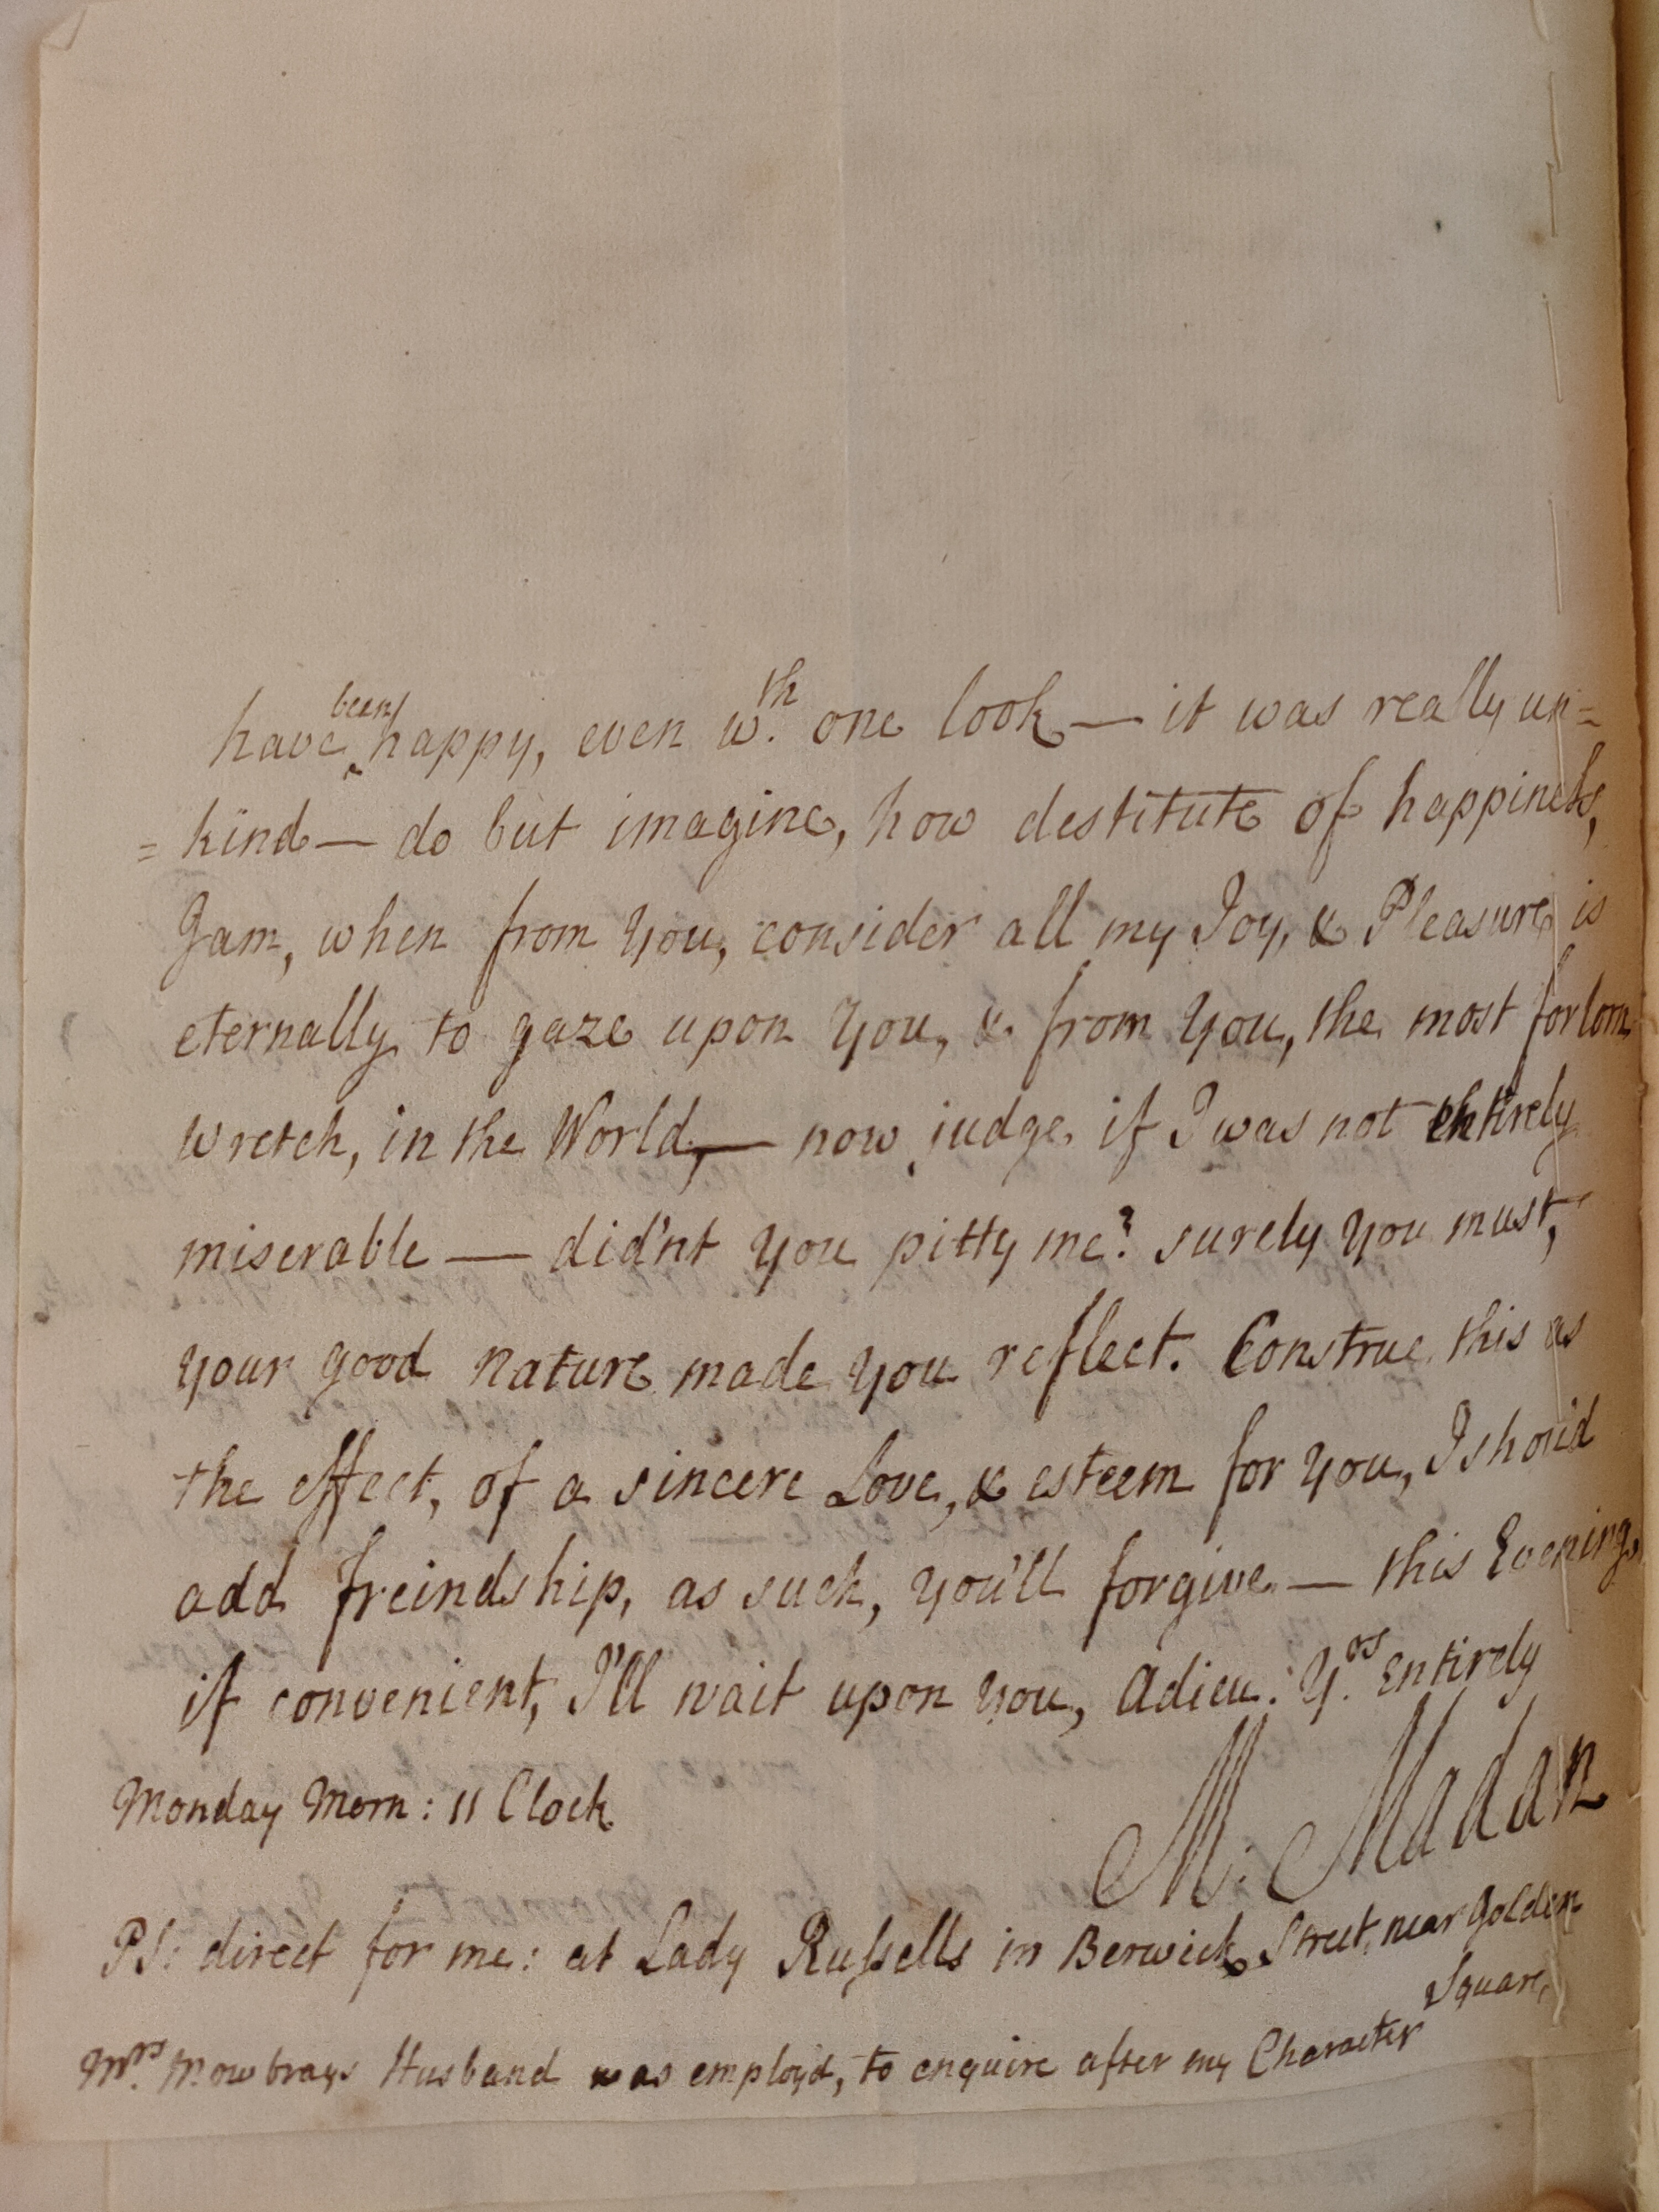 have been happy, even wth. one look — it was really un=
= kind — do but imagine, how destitute of happiness,
I am, when from you, consider all my Joy, & Pleasure is
eternally to gaze upon you, & from you, the most forlorn
wretch, in the World, — now judge if I was not entirely
miserable — did'nt you pitty me? surely you must,
your good nature made you reflect. Construe this as
the effect, of a sincere Love, & esteem for you, I shou'd
add freindship, as such, you'll forgive — this Evening,
if convenient, I'll wait upon you, adieu. Yrs. entirely
M: Madan
Monday Morn: 11 Clock
PS: direct for me: at Lady Russells in Berwick Street, near Golden
Square,
Mrs. Mowbrays Husband was employd, to enquire after my Character